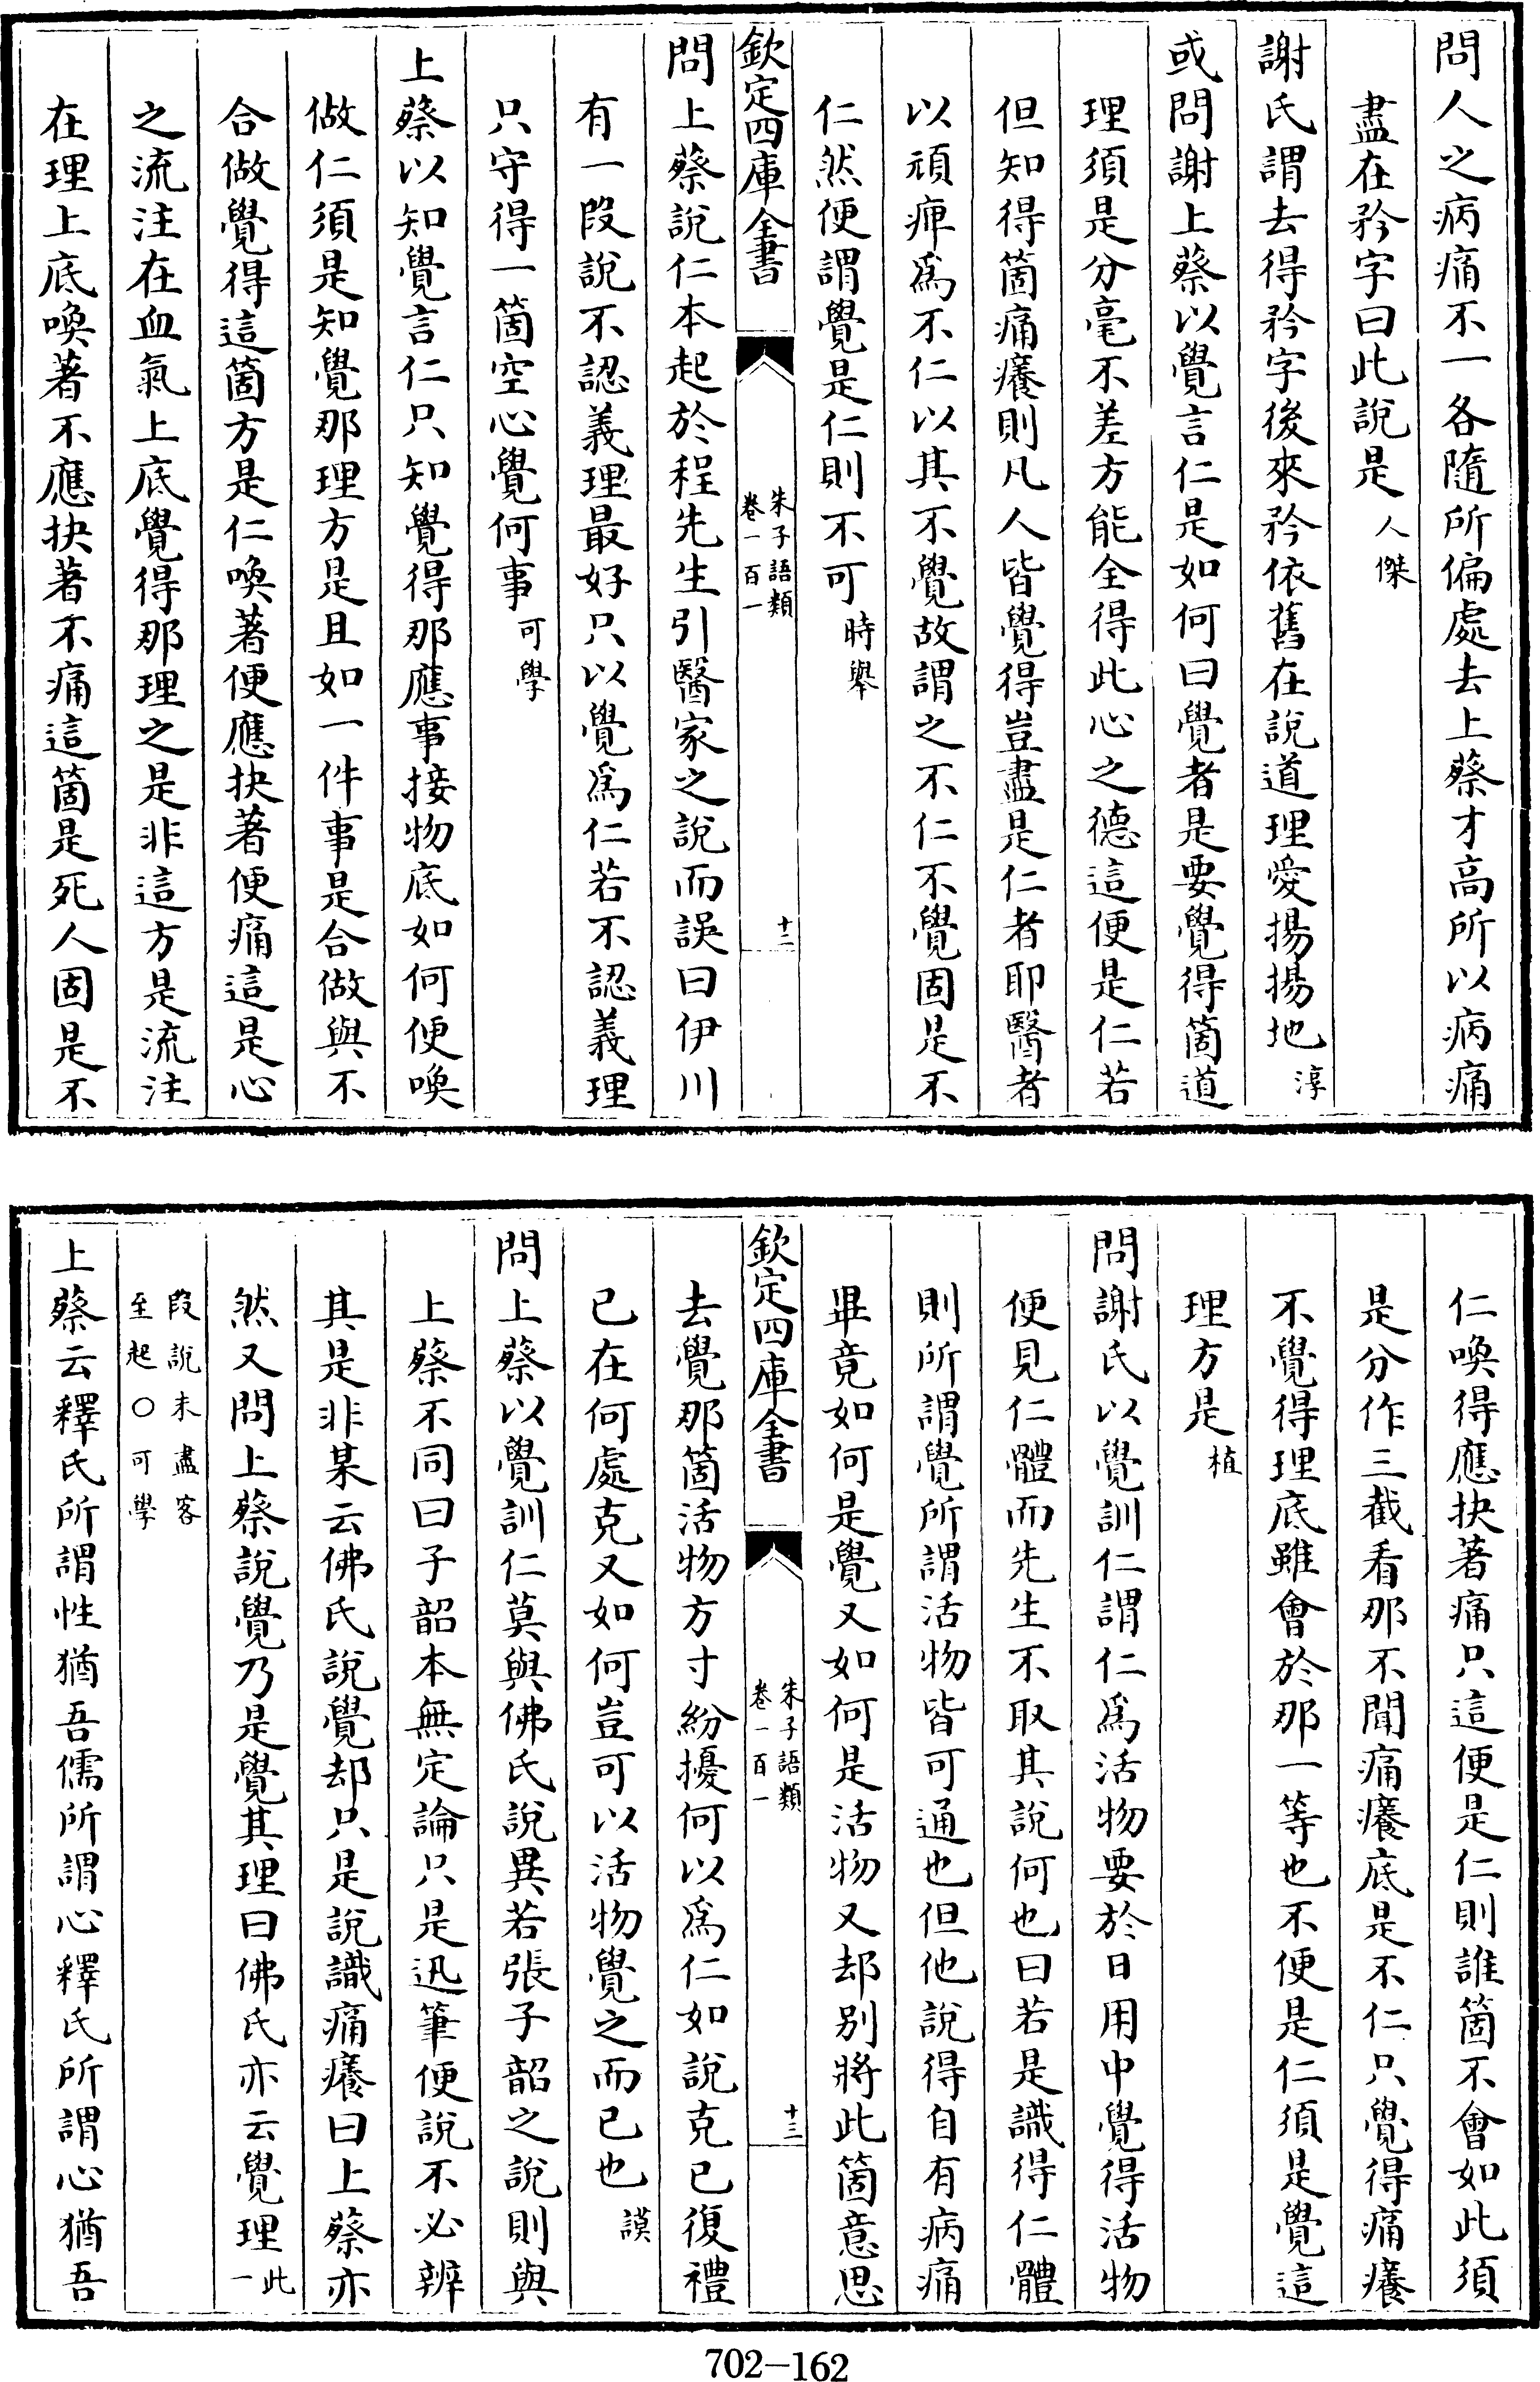 問人之病痛不一各隨所偏處去上蔡才高所以病痛
盡在矜字曰此説是人傑
謝氏謂去得矜字後來矜依舊在説道理愛揚揚地淳
或問謝上蔡以覺言仁是如何曰覺者是要覺得箇道
理須是分毫不差方能全得此心之德這便是仁若
但知得箇痛癢則凡人皆覺得豈盡是仁者耶醫者
以頑痹爲不仁以其不覺故謂之不仁不覺固是不
仁然便謂覺是仁則不可時舉
欽定四庫全書
朱子語類
卷一百一
十二
問上蔡説仁本起於程先生引醫家之説而誤曰伊川
有一段説不認義理最好只以覺爲仁若不認義理
只守得一箇空心覺何事可學
上蔡以知覺言仁只知覺得那應事接物底如何便喚
做仁須是知覺那理方是且如一件事是合做與不
合做覺得這箇方是仁喚著便應抉著便痛這是心
之流注在血氣上底覺得那理之是非這方是流注
在理上底喚著不應抉著不痛這箇是死人固是不
仁喚得應抉著痛只這便是仁則誰箇不會如此須
是分作三截看那不聞痛癢底是不仁只覺得痛癢
不覺得理底雖會於那一等也不便是仁須是覺這
理方是植
問謝氏以覺訓仁謂仁爲活物要於日用中覺得活物
便見仁體而先生不取其説何也曰若是識得仁體
則所謂覺所謂活物皆可通也但他説得自有病痛
畢竟如何是覺又如何是活物又却别將此箇意思
欽定四庫全書
朱子語類
卷一百一
十三
去覺那箇活物方寸紛擾何以爲仁如説克已復禮
已在何處克又如何豈可以活物覺之而已也謨
問上蔡以覺訓仁莫與佛氏説異若張子韶之説則與
上蔡不同曰子韶本無定論只是迅筆便説不必辨
其是非某云佛氏説覺却只是説識痛癢曰上蔡亦
然又問上蔡説覺乃是覺其理曰佛氏亦云覺理此一
段説未盡客
至起○可學
上蔡云釋氏所謂性猶吾儒所謂心釋氏所謂心猶吾
702-162